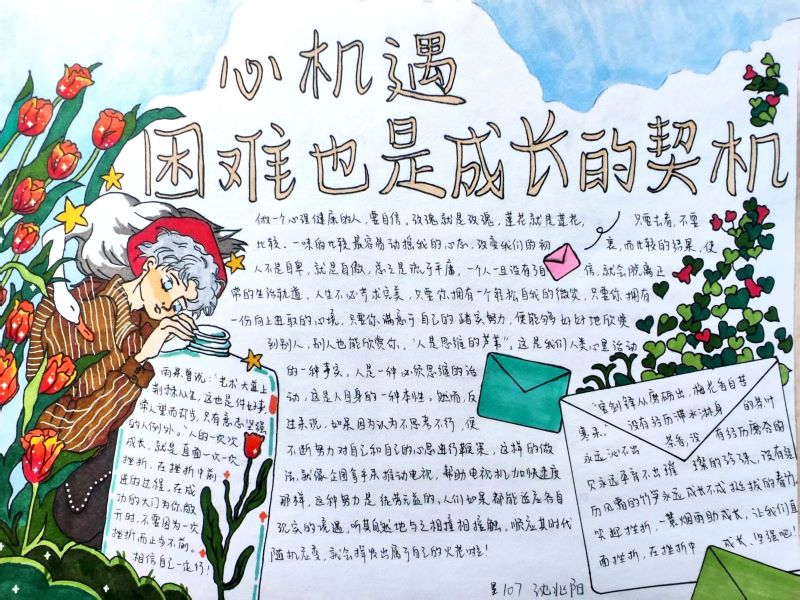 心机遇
困难也是成长的契机
做一个心理健康的人，要自信。玫瑰就是玫瑰，莲花就是莲花，只要去看，不要
比较。一味的比较最容易动摇我的心态，改变我们的初衷，而比较的结果，使
人不是自卑，就是自傲，总之流于平庸。一个人一旦没有了自信，就会脱离正
常的生活轨道，人生不必苛求完美，只要你拥有一个轻松自我的微笑，只要你拥有
一份向上进取的心境，只要你满意于自己的踏实努力，便能够好好地欣赏
到别人，别人也能欣赏你，"人是思维的芦苇"，这是我们人类心里活动
的一种事实，人是一种必须思维的活
动，这是人自身的一种本性。然而，反
过来说，如果因为认为不思考不行，便
不断努力对自己和自己的心思进行鞭策，这样的做
法，就像企图拿手来推动电视，帮助电视机加快速度
那样，这种努力是徒劳无益的，人们如果都能适应各自
现实的境遇，听其自然地与之相撞相接触，顺应其时代
随机应变，就会择发出属于自己的火花啦！
雨果曾说："艺术大道上
荆棘丛生，这也是件好事，
常人望而却步，只有意志坚强
的人例外。"人的一次次
成长，就是直面一次一次
挫折，在挫折中前
进的过程，在成
功的大门为你敞
开时，不要因为一次
挫折而止步不前。
相信自己一定行！
"宝剑锋从磨砺出，梅花香自苦
寒来。"没有经历滞水浸身的茶叶
永远沁不出茶香，没有经历磨合的
贝永远孕育不出璀璨的珍珠，没有经
历风霜的竹学永远成长不成挺拔的春竹，
欢迎挫折，一蓑烟雨助成长，让我们直
面挫折，在挫折中成长、坚强吧！
星107 沈兆阳